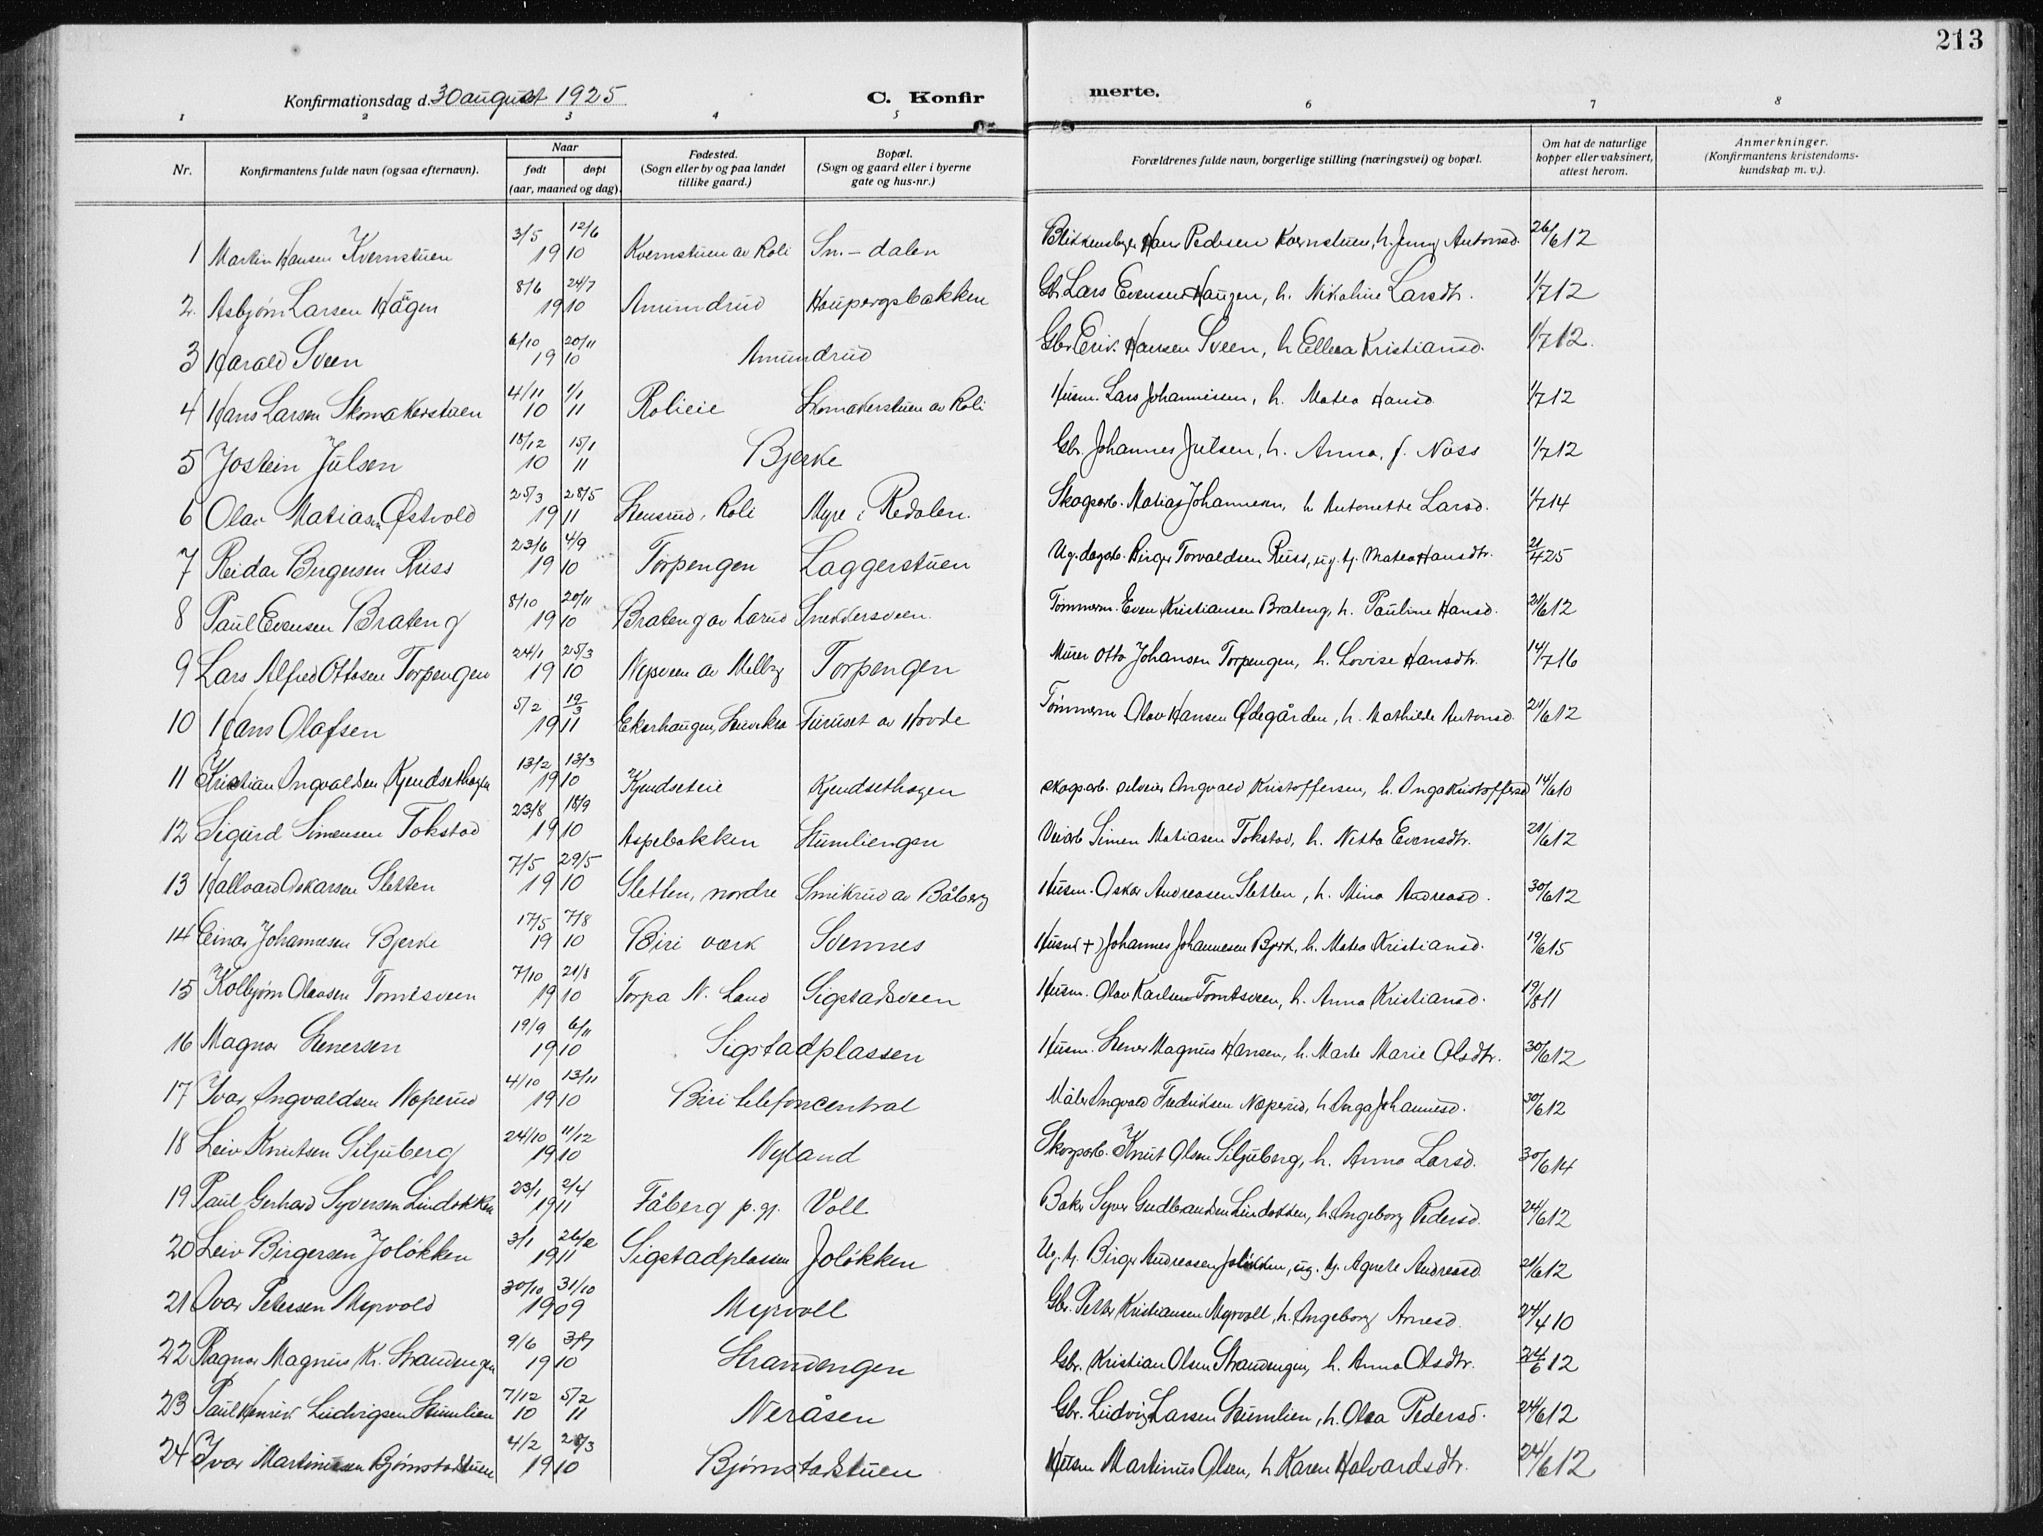 213
Konfirmationsdag d. 30 august 1925
C. Konfirmerte.
1 2 3 4 5 6 7 8
Nr. Konfirmantens fulde navn (ogsaa efternavn). Naar født døpt (aar, maaned og dag) Fødested. (Sogn eller by og paa landet tillike gaard.) Bopæl. (Sogn og gaard eller i byerne gate og hus-nr.) Forældrenes fulde navn, borgerlige stilling (næringsvei) og bopæl. Om hat de naturlige kopper eller vaksinert, attest herom. Anmerkninger. (Konfirmantens kristendoms-kundskap m. v.).
1 Martin Hansen Kvernstuen 3/5 12/6 1910 Kvernstuen av Roli Sn.-dalen Hans Pedersen Kvernstuen, h. Jenny Antonsd. 26/6 12
2. Asbjørn Larsen Hågen 8/6 24/7 1910 Amundrud Haupergsbakken Gbr. Lars Evensen Haugen, h. Nikoline Larsdtr. 1/7 12
3 Harald Sveen 6/10 20/11 1910 Amundrud Gbr. Erik Hansen Sveen, h. Ellea Kristiansd. 1/7 12.
4 Hans Larsen Skomakerstuen 4/11 10 1/1 11 Rolieie Skomakerstuen av Roli Husm. Lars Johannesen, h. Matea Hansd. 1/7 12
5 Jostein Julsen 18/12 10 15/1 11 Bjerke Gbr. Johannes Julsen, h. Anna, f. Næss 1/7 12
6 Olav Matiasen Østvold 25/3 28/5 1911 Stensrud, Roli Myre i Redalen. Skogsarb. Matias Johannesen, h. Antonette Larsd. 1/7 14
7 Reidar Bergersen Russ 23/6 4/9 1910 Torpengen Laggerstuen Ug. dagarb. Birger Torvaldsen Russ, ug. tj. Matea Hansdtr. 21/4 25
8 Paul Evensen Brateng 8/10 20/11 1910 Brateng av Larud Sneddersveen. Tømmerm. Even Kristiansen Brateng, h. Pauline Hansd. 24/6 12
9 Lars Alfred Ottosen Torpengen 24/1 25/3 1910 Nysveen av Melby Torpengen Murer Otto Johansen Torpengen, h. Lovise Hansdtr. 14/7 16
10 Hans Olafsen 5/2 19/3 1911 Ekerhaugen, Furuset av Hovde Tømmerm Olav Hansen Ødegården, h. Mathilde Antonsd. 24/6 12
11 Kristian Ingvaldsen Kjendsethagen 13/2 13/3 1910 Kjendseteie Kjendsethagen Skogsarb. Ingvald Kristoffersen, h. Inga Kristoffersd 14/6 10
12 Sigurd Simensen Tokstad 23/8 18/9 1910 Aspebakken Stumliengen Veiarb. Simen Matiasen Tokstad, h. Netta Evensdtr. 21/6 12
13 Hallvard Oskarsen Sletten 7/5 29/5 1910 Sletten, nordre Smikrud av Båberg Husm. Oskar Andreasen Sletten, h. Mina Andreasd. 30/6 12
14 Einar Johannesen Bjerke 17/5 7/8 1910 Biri værk Svennes Husm(+) Johannes Johannesen Bjerk, h. Matea Kristiansd. 19/6 15
15 Kolbjørn Olavsen Tomtsveen 7/10 21/8 1910 Torpa N. Land Sigstadsveen Husm. Olav Karlsen Tomtsveen, h. Anna Kristiansd. 19/8 11
16 Magnar Stenersen 19/9 6/11 1910 Sigstadplassen Husm. Stener Magnus Hansen, h. Marte Marie Olsdtr. 30/6 12
17 Ivar Ingvaldsen Næperud 4/10 13/11 1910 Biri telefoncentral Måler Ingvald Fredriksen Næperud, h. Inga Johannesd. 30/6 12
18 Leiv Knutsen Siljuberg 24/10 11/12 1910 Nyland Skogsarb. Knut Olsen Siljuberg, h. Anna Larsd. 30/6 14
19 Paul Gerhard Syversen Lindekken 23/1 2/4 1911 Fåberg p.gj. Voll Baker Syver Gudbrandsen Lindekken, h. Ingeborg Pedersd. 24/6 12
20 Leiv Birgersen Joløkken 3/1 26/2 1911 Sigstadplassen Joløkken Ug. tj. Birger Andreasen Joløkken, ug. tj. Agnete Andreasd. 21/6 12
21 Ivar Petersen Myrvold 30/10 31/10 1909 Myrvoll Gbr. Petter Kristiansen Myrvoll, h. Ingeborg Arnesd. 24/4 10
22 Ragnar Magnus Kr. Strandengen 9/6 3/7 1910 Strandengen Gbr. Kristian Olsen Strandengen, h. Anna Olsdtr. 24/6 12
23 Paul Henrik Ludvigsen Stumlien 7/12 10 5/2 11 Neråsen Gbr. Ludvig Larsen Stumlien, h. Olea Pedersd. 24/6 12
24 Ivar Martinusen Bjørnstadstuen 4/2 28/3 1910 Bjørnstadstuen Husm Martinus Olsen, h Karen Halvardsdtr. 24/6 12